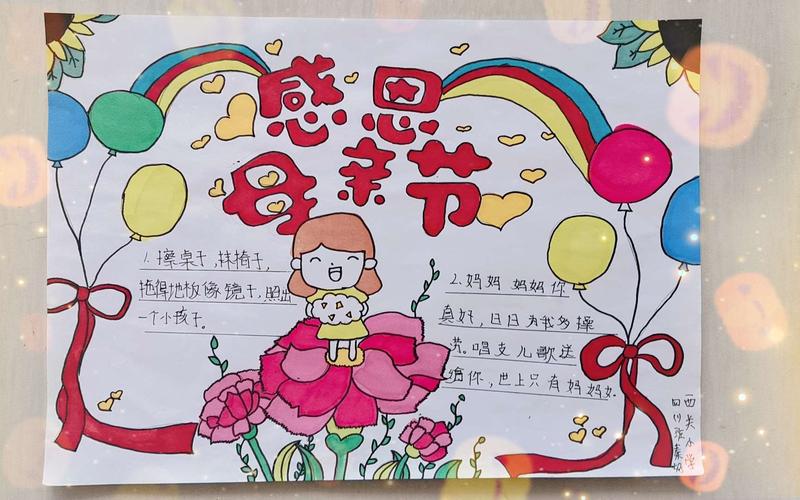 感恩
母亲节
1.擦桌子,抹椅子,
拖得地板像镜子,照出
一个小孩子。
2.妈妈 妈妈你
真好,日日为我多操
劳。唱支儿歌送
给你,世上只有妈妈好.
西关小学
四(1)张